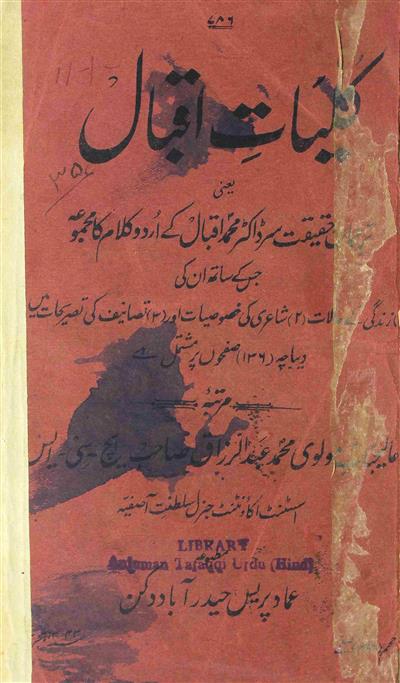 ۷۸۶
کلیاتِ اقبال
۳۵۶
یعنی
حقیقت سر ڈاکٹر محمد اقبال کے اُردو کلام کا مجموعہ
جس کے ساتھ ان کی
زندگی کے حالات (۲) شاعری کی خصوصیات اور (۳) تصانیف کی تصریحات میں
دیباچہ (۱۳۶) صفحوں پر مشتمل ہے
مرتبہ
مولوی محمد عبدالرزاق صاحب ایچ۔سی۔ایس
اسسٹنٹ اکاؤنٹنٹ جنرل سلطنت آصفیہ
LIBRARY
Anjuman Taraqqi Urdu (Hind)
مطبوعہ
عماد پریس حیدرآباد دکن